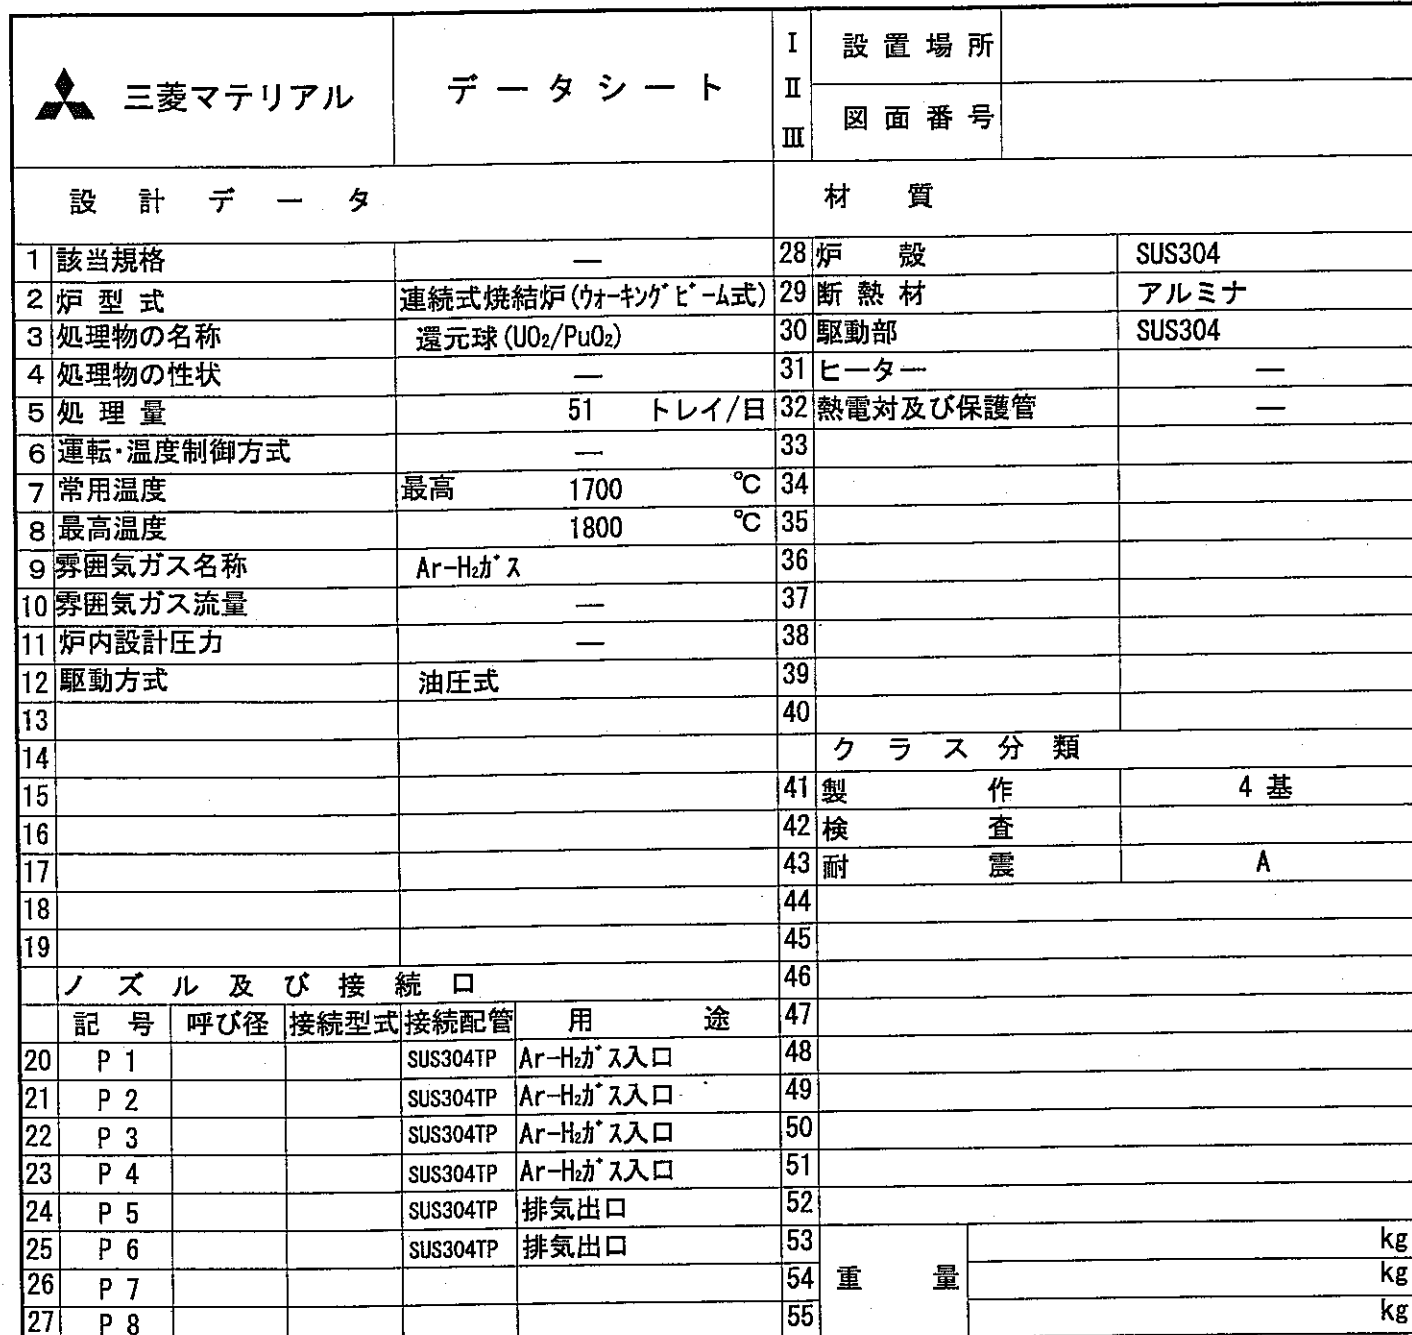 三菱マテリアル
データシート
Ⅰ
Ⅱ
Ⅲ
設置場所
図面番号
設計データ
1 該当規格 —
2 炉型式 連続式焼結炉(ｳｫｰｷﾝｸﾞﾋﾞｰﾑ式)
3 処理物の名称 還元球(UO₂/PuO₂)
4 処理物の性状 —
5 処理量 51 トレイ/日
6 運転・温度制御方式 —
7 常用温度 最高 1700 ℃
8 最高温度 1800 ℃
9 雰囲気ガス名称 Ar-H₂ｶﾞｽ
10 雰囲気ガス流量 —
11 炉内設計圧力 —
12 駆動方式 油圧式
13
14
15
16
17
18
19
ノズル及び接続口
記号 呼び径 接続型式 接続配管 用途
20 P 1 SUS304TP Ar-H₂ｶﾞｽ入口
21 P 2 SUS304TP Ar-H₂ｶﾞｽ入口
22 P 3 SUS304TP Ar-H₂ｶﾞｽ入口
23 P 4 SUS304TP Ar-H₂ｶﾞｽ入口
24 P 5 SUS304TP 排気出口
25 P 6 SUS304TP 排気出口
26 P 7
27 P 8
材質
28 炉殻 SUS304
29 断熱材 アルミナ
30 駆動部 SUS304
31 ヒーター —
32 熱電対及び保護管 —
33
34
35
36
37
38
39
40
クラス分類
41 製作 4 基
42 検査
43 耐震 A
44
45
46
47
48
49
50
51
52
53 kg
54 重量 kg
55 kg